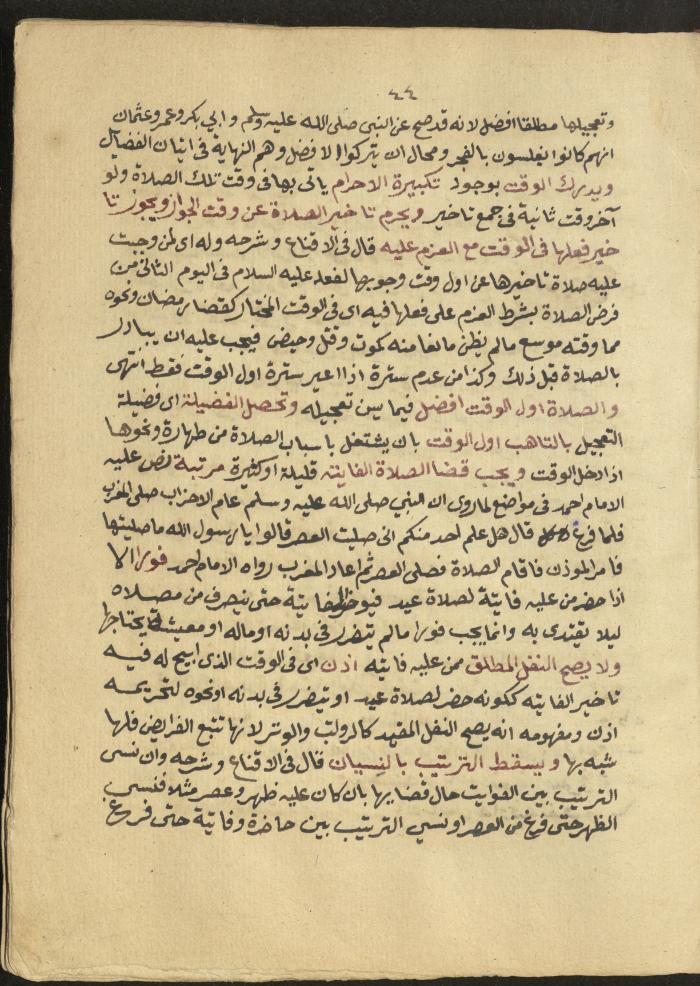 ٤٤
وتعجيلها مطلقا افضل لانه قد صح عن النبي صلى الله عليه وسلم وابي بكر وعمر وعثمان
انهم كانوا يغلسون بالفجر ومحال ان يتركوا الافضل وهم النهاية في اتيان الفضايل
ويدرك الوقت بوجود تكبيرة الاحرام ياتي بها في وقت تلك الصلاة ولو
آخر وقت ثانية في جمع تاخير ويحرم تاخير الصلاة عن وقت الجواز ويجوز تا
خير فعلها في الوقت مع العزم عليه قال في الاقناع وشرحه وله اي لمن وجبت
عليه صلاة تاخيرها عن اول وقت وجوبها لفعله عليه السلام في اليوم الثاني من
فرض الصلاة بشرط العزم على فعلها فيه اي في الوقت المختار كقضا رمضان ونحوه
مما وقته موسع مالم يظن مانعا منه كموت وقتل وحيض فيجب عليه ان يبادر
بالصلاة قبل ذلك وكذا من عدم سترة اذا اعير سترة اول الوقت فقط انتهى
والصلاة اول الوقت افضل فيما يسن تعجيله وتحصل الفضيلة اي فضيلة
التعجيل بالتاهب اول الوقت بان يشتغل باسباب الصلاة من طهارة ونحوها
اذا دخل الوقت ويجب قضا الصلاة الفايته قليلة او كثيرة مرتبة نص عليه
الامام احمد في مواضع لما روي ان النبي صلى الله عليه وسلم عام الاحزاب صلى المغرب
فلما فرغ قال هل علم احد منكم اني صليت العصر قالوا يا رسول الله ما صليتها
فامر الموذن فاقام الصلاة فصلى العصر ثم اعاد المغرب رواه الامام احمد فورا الا
اذا حضر من عليه فايتة لصلاة عيد فيوخر الفايتة حتى ينصرف من مصلاه
ليلا يقتدى به وانما يجب فورا مالم يتضرر في بدنه او ماله او معيشة يحتاجها
ولا يصح النفل المطلق ممن عليه فايته اذن اي في الوقت الذي ابيح له فيه
تاخير الفايته ككونه حضر لصلاة عيد او يتضرر في بدنه او نحوه لتحريمه
اذن ومفهومه انه يصح النفل المقيد كالرواتب والوتر لانها تتبع الفرايض فلها
شبه بها ويسقط الترتيب بالنسيان قال في الاقناع وشرحه وان نسي
الترتيب بين الفوايت حال قضايها بان كان عليه ظهر وعصر مثلا فنسي
الظهر حتى فرغ من العصر او نسي الترتيب بين حاضرة وفايتة حتى فرغ